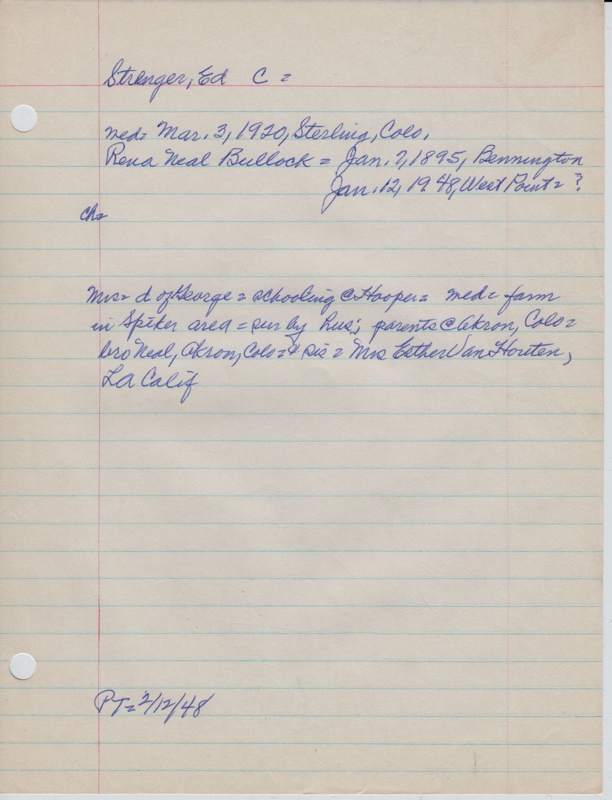 Strenger, Ed C =
med= Mar. 3, 1920, Sterling, Colo.
Rena Neal Bullock = Jan. 7, 1895, Bennington
Jan. 12, 1948, West Point = ?
ch=
Mrs= d of George = schooling @ Hooper = med= farm
in Spiker area = sur by hus; parents @ Akron, Colo =
bro Neal, Akron, Colo = & sis = Mrs Esther Van Houten,
LA Calif
PT= 2/12/48